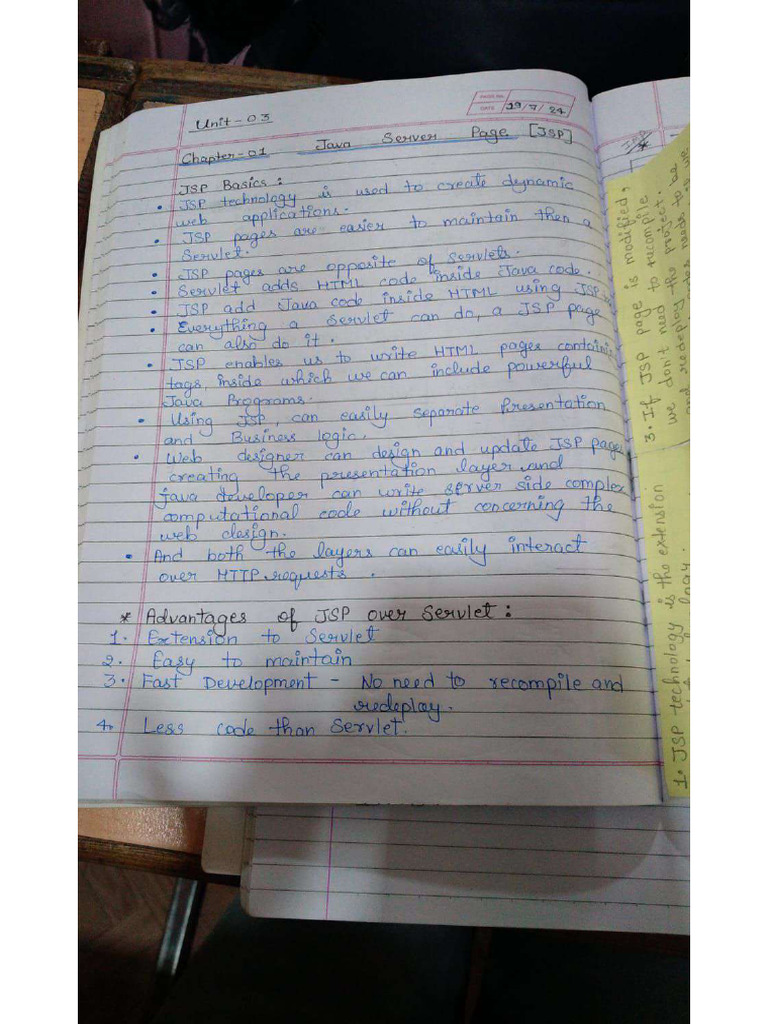 PAGE NO.
DATE 19/7/24
Unit-03
Chapter-01 Java Server Page [JSP]
JSP Basics :
• JSP technology is used to create dynamic
web applications.
• JSP pages are easier to maintain then a
Servlet.
• JSP pages are opposite of Servlets.
• Servlet adds HTML code inside Java code.
• JSP add Java code inside HTML using JSP
• Everything a Servlet can do, a JSP page
can also do it.
• JSP enables us to write HTML pages contain
tags, inside which we can include powerful
Java Programs.
• Using JSP, can easily separate Presentation
and Business logic.
• Web designer can design and update JSP pages
creating the presentation layer and
java developer can write server side complex
computational code without concerning the
web design.
• And both the layers can easily interact
over HTTP requests.
* Advantages of JSP over Servlet :
1. Extension to Servlet
2. Easy to maintain
3. Fast Development - No need to recompile and
redeploy.
4. Less code than Servlet.
3. If JSP page is modified,
we don't need to recompile
and redeploy the project.
1. JSP technology is the extension